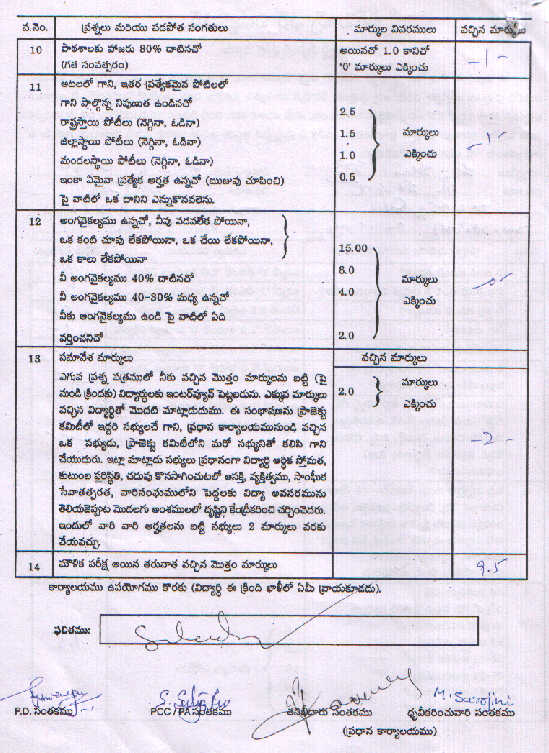 వ.నెం. ప్రశ్నలు మరియు వడపోత సంగతులు మార్కుల వివరములు వచ్చిన మార్కులు
10 పాఠశాలకు హాజరు 80% దాటినచో అయినలో 1.0 కానిచో -1-
(గత సంవత్సరం) '0' మార్కులు ఎక్కించు
11 ఆటలలో గాని, ఇతర ప్రత్యేకమైన పోటీలలో
గాని పాల్గొన్న నిపుణత ఉండినచో 2.5
రాష్ట్రస్థాయి పోటీలు (నెగ్గినా, ఓడినా) 1.5 మార్కులు -1-
జిల్లాస్థాయి పోటీలు (నెగ్గినా, ఓడినా) 1.0 ఎక్కించు
మండలస్థాయి పోటీలు (నెగ్గినా, ఓడినా) 0.5
ఇంకా ఏమైనా ప్రత్యేక అర్హత ఉన్నచో (ఋజువు చూపించి)
పై వాటిలో ఒక దానిని ఎన్నుకొనవలెను.
12 అంగవైకల్యము ఉన్నచో, నీవు నడవలేక పోయినా,
ఒక కంటి చూపు లేకపోయినా, ఒక చేయి లేకపోయినా, 15.00
ఒక కాలు లేకపోయినా 8.0 మార్కులు
నీ అంగవైకల్యము 40% దాటినచో 4.0 ఎక్కించు
నీ అంగవైకల్యము 40-30% మధ్య ఉన్నచో
నీకు అంగవైకల్యము ఉండి పై వాటిలో ఏది
వర్తించనిచో 2.0
13 సమావేశ మార్కులు వచ్చిన మార్కులు
ఎగువ ప్రశ్న పత్రములో నీకు వచ్చిన మొత్తం మార్కులను బట్టి (పై 2.0 మార్కులు
నుండి క్రిందకు) విద్యార్థులకు ఇంటర్వ్యూన్ పెట్టబడును. ఎక్కువ మార్కులు ఎక్కించు
వచ్చిన విద్యార్థితో మొదటి మాట్లాడుదుము. ఈ సంభాషణను ప్రాజెక్టు
కమిటీలో ఇద్దరి సభ్యులచే గాని, (ప్రధాన కార్యాలయమునుండి వచ్చిన
ఒక సభ్యుడు, ప్రాజెక్టు కమిటీలోని మరో సభ్యునితో కలిసి గాని -2-
చేయుదురు. ఇట్లా మాట్లాడు సభ్యులు ప్రధానంగా విద్యార్థి ఆర్థిక స్తోమత,
కుటుంబ పరిస్థితి, చదువు కొనసాగించుటలో ఆసక్తి, వ్యక్తిత్వము, సాంఘిక
సేవాతత్పరత, వారిసంఘములోని పెద్దలకు విద్యా అవసరమును
తెలియజెప్పుట మొదలగు అంశములలో దృష్టిని కేంద్రీకరించి చర్చించెదరు.
ఇందులో వారి వారి అర్హతలను బట్టి సభ్యులు 2 మార్కులు వరకు
వేయవచ్చు.
14 మౌఖిక పరీక్ష అయిన తరువాత వచ్చిన మొత్తం మార్కులు 9.5
కార్యాలయము ఉపయోగము కొరకు (విద్యార్థి ఈ క్రింది ఖాళీలో ఏమీ వ్రాయకూడదు).
ఫలితము:
M. Sarojini
P.D. సంతకము PCC / PA సంతకము తనిఖీదారు సంతకము ధృవీకరించువారి సంతకము
(ప్రధాన కార్యాలయం)